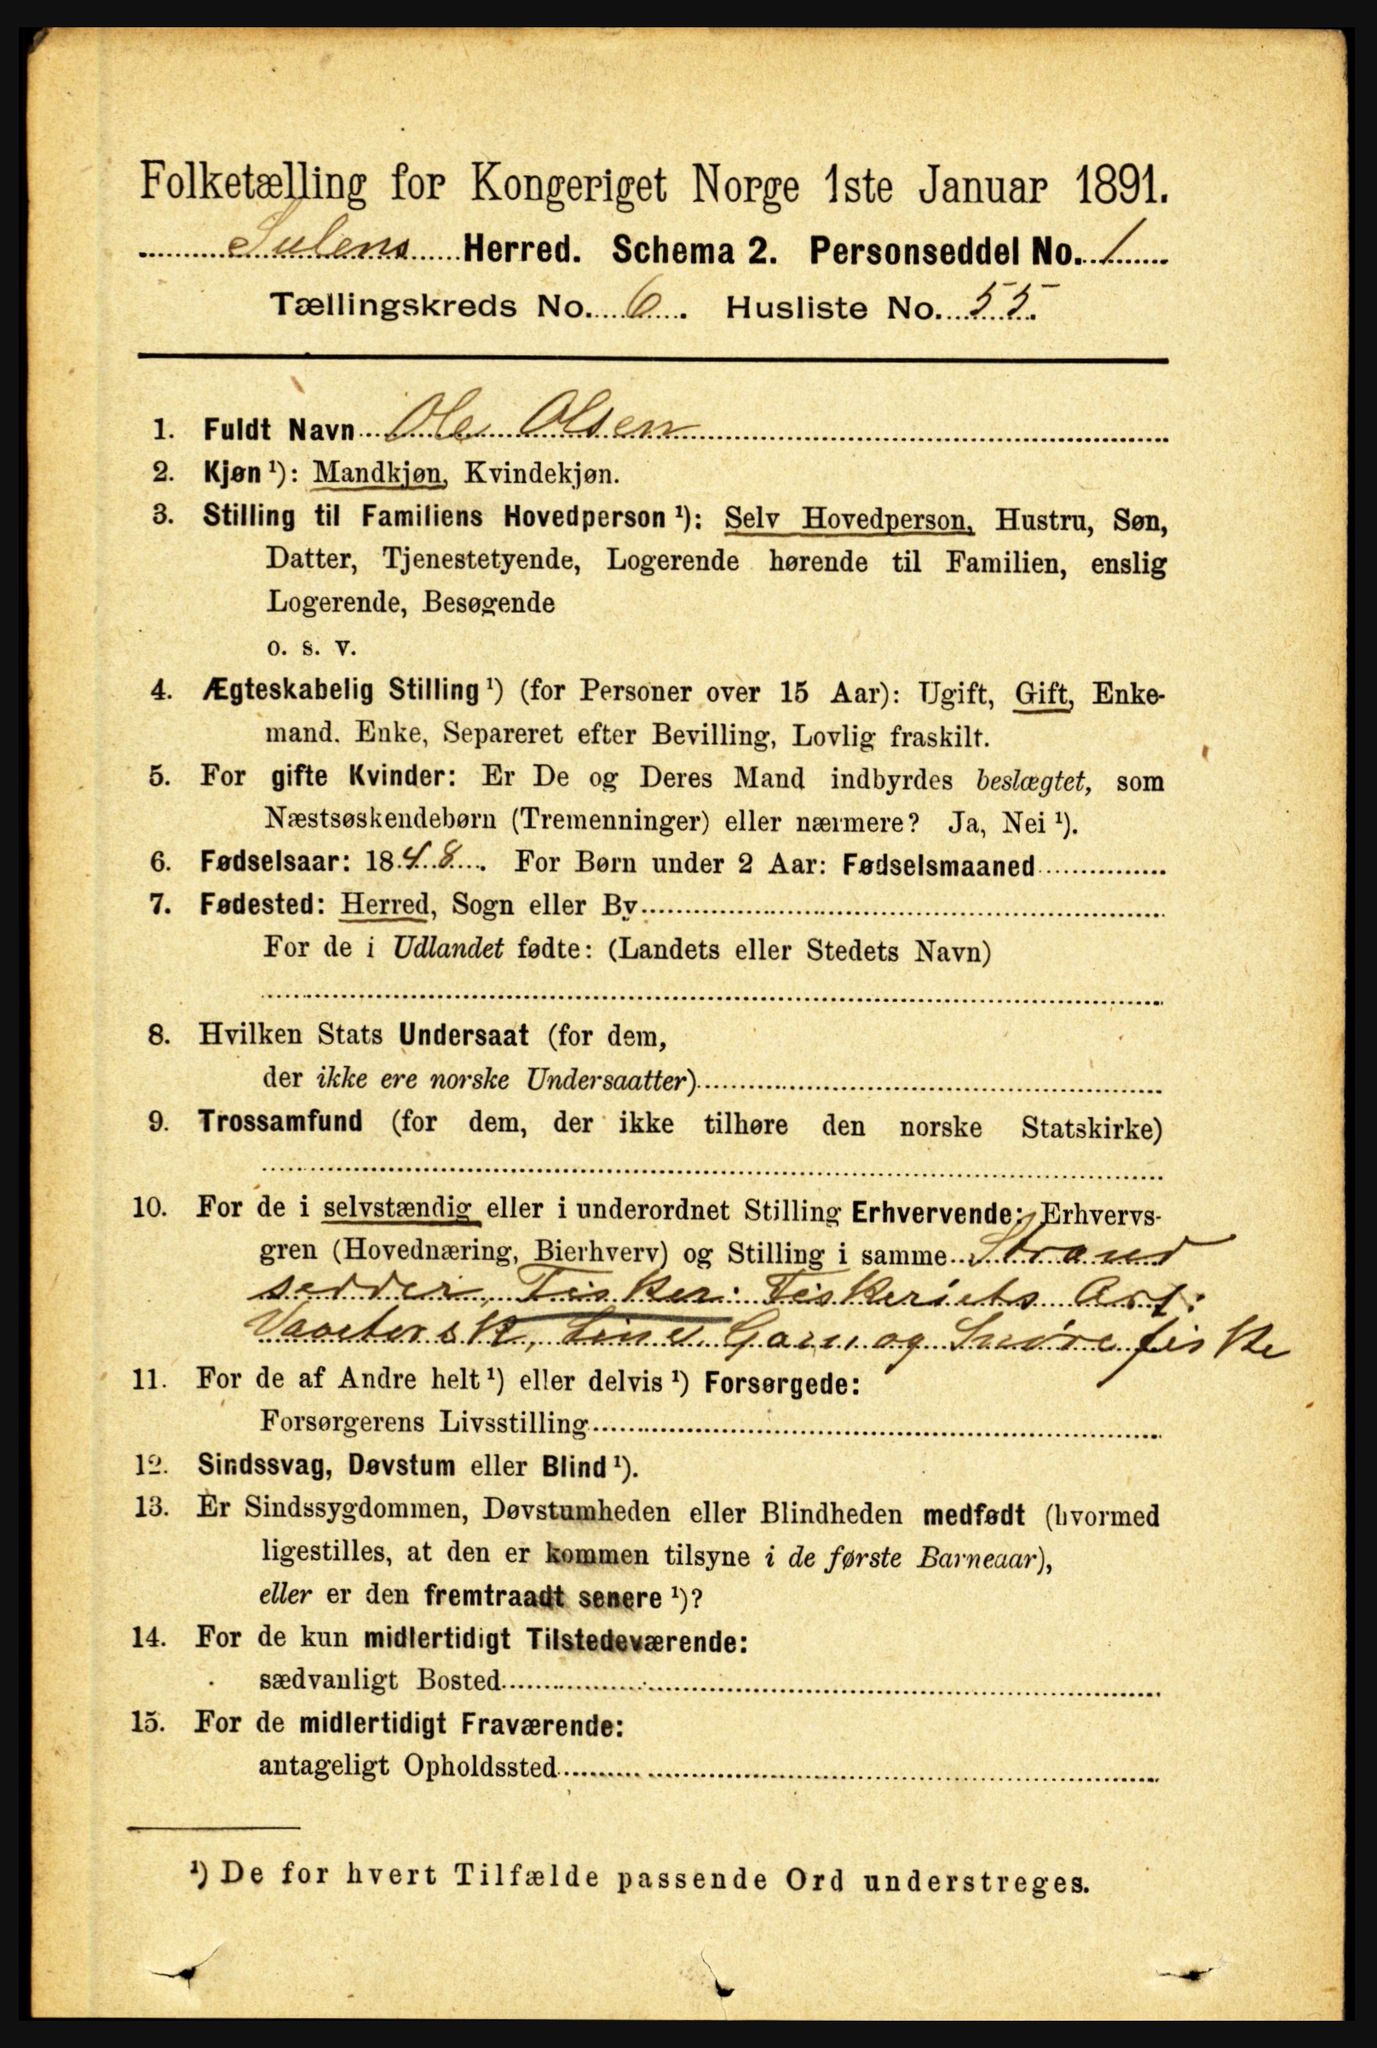 Folketælling for Kongeriget Norge 1ste Januar 1891.
Sulens Herred. Schema 2. Personseddel No. 1
Tællingskreds No. 6. Husliste No. 55.
1. Fuldt Navn Ole Olsen
2. Kjøn ¹): Mandkjøn, Kvindekjøn.
3. Stilling til Familiens Hovedperson ¹): Selv Hovedperson, Hustru, Søn,
Datter, Tjenestetyende, Logerende hørende til Familien, enslig
Logerende, Besøgende
o. s. v.
4. Ægteskabelig Stilling ¹) (for Personer over 15 Aar): Ugift, Gift, Enke-
mand. Enke, Separeret efter Bevilling, Lovlig fraskilt.
5. For gifte Kvinder: Er De og Deres Mand indbyrdes beslægtet, som
Næstsøskendebørn (Tremenninger) eller nærmere? Ja, Nei ¹).
6. Fødselsaar: 1848. For Børn under 2 Aar: Fødselsmaaned
7. Fødested: Herred, Sogn eller By
For de i Udlandet fødte: (Landets eller Stedets Navn)
8. Hvilken Stats Undersaat (for dem,
der ikke ere norske Undersaatter)
9. Trossamfund (for dem, der ikke tilhøre den norske Statskirke)
10. For de i selvstændig eller i underordnet Stilling Erhvervende: Erhvervs-
gren (Hovednæring, Bierhverv) og Stilling i samme Strand
sedder, Fisker: Fiskeriets Art:
Vaartorsk, Line Garn og Snørefiske
11. For de af Andre helt ¹) eller delvis ¹) Forsørgede:
Forsørgerens Livsstilling
12. Sindssvag, Døvstum eller Blind ¹).
13. Er Sindssygdommen, Døvstumheden eller Blindheden medfødt (hvormed
ligestilles, at den er kommen tilsyne i de første Barneaar),
eller er den fremtraadt senere ¹)?
14. For de kun midlertidigt Tilstedeværende:
sædvanligt Bosted
15. For de midlertidigt Fraværende:
antageligt Opholdssted
¹) De for hvert Tilfælde passende Ord understreges.